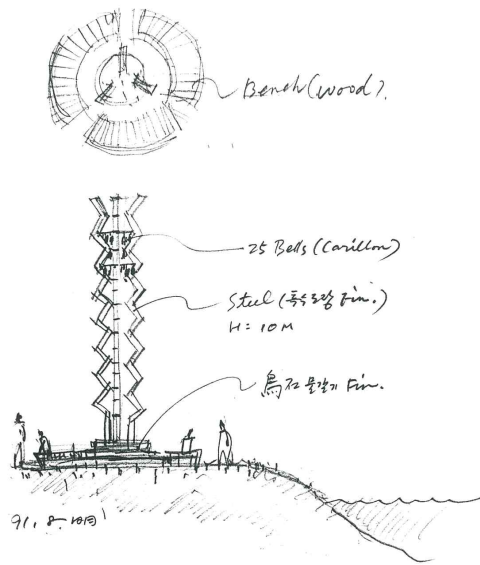 Bench (wood).
25 Bells (Carillon)
Steel (특수도장 Fin.)
H: 10M
烏石 물갈기 Fin.
91. 8.